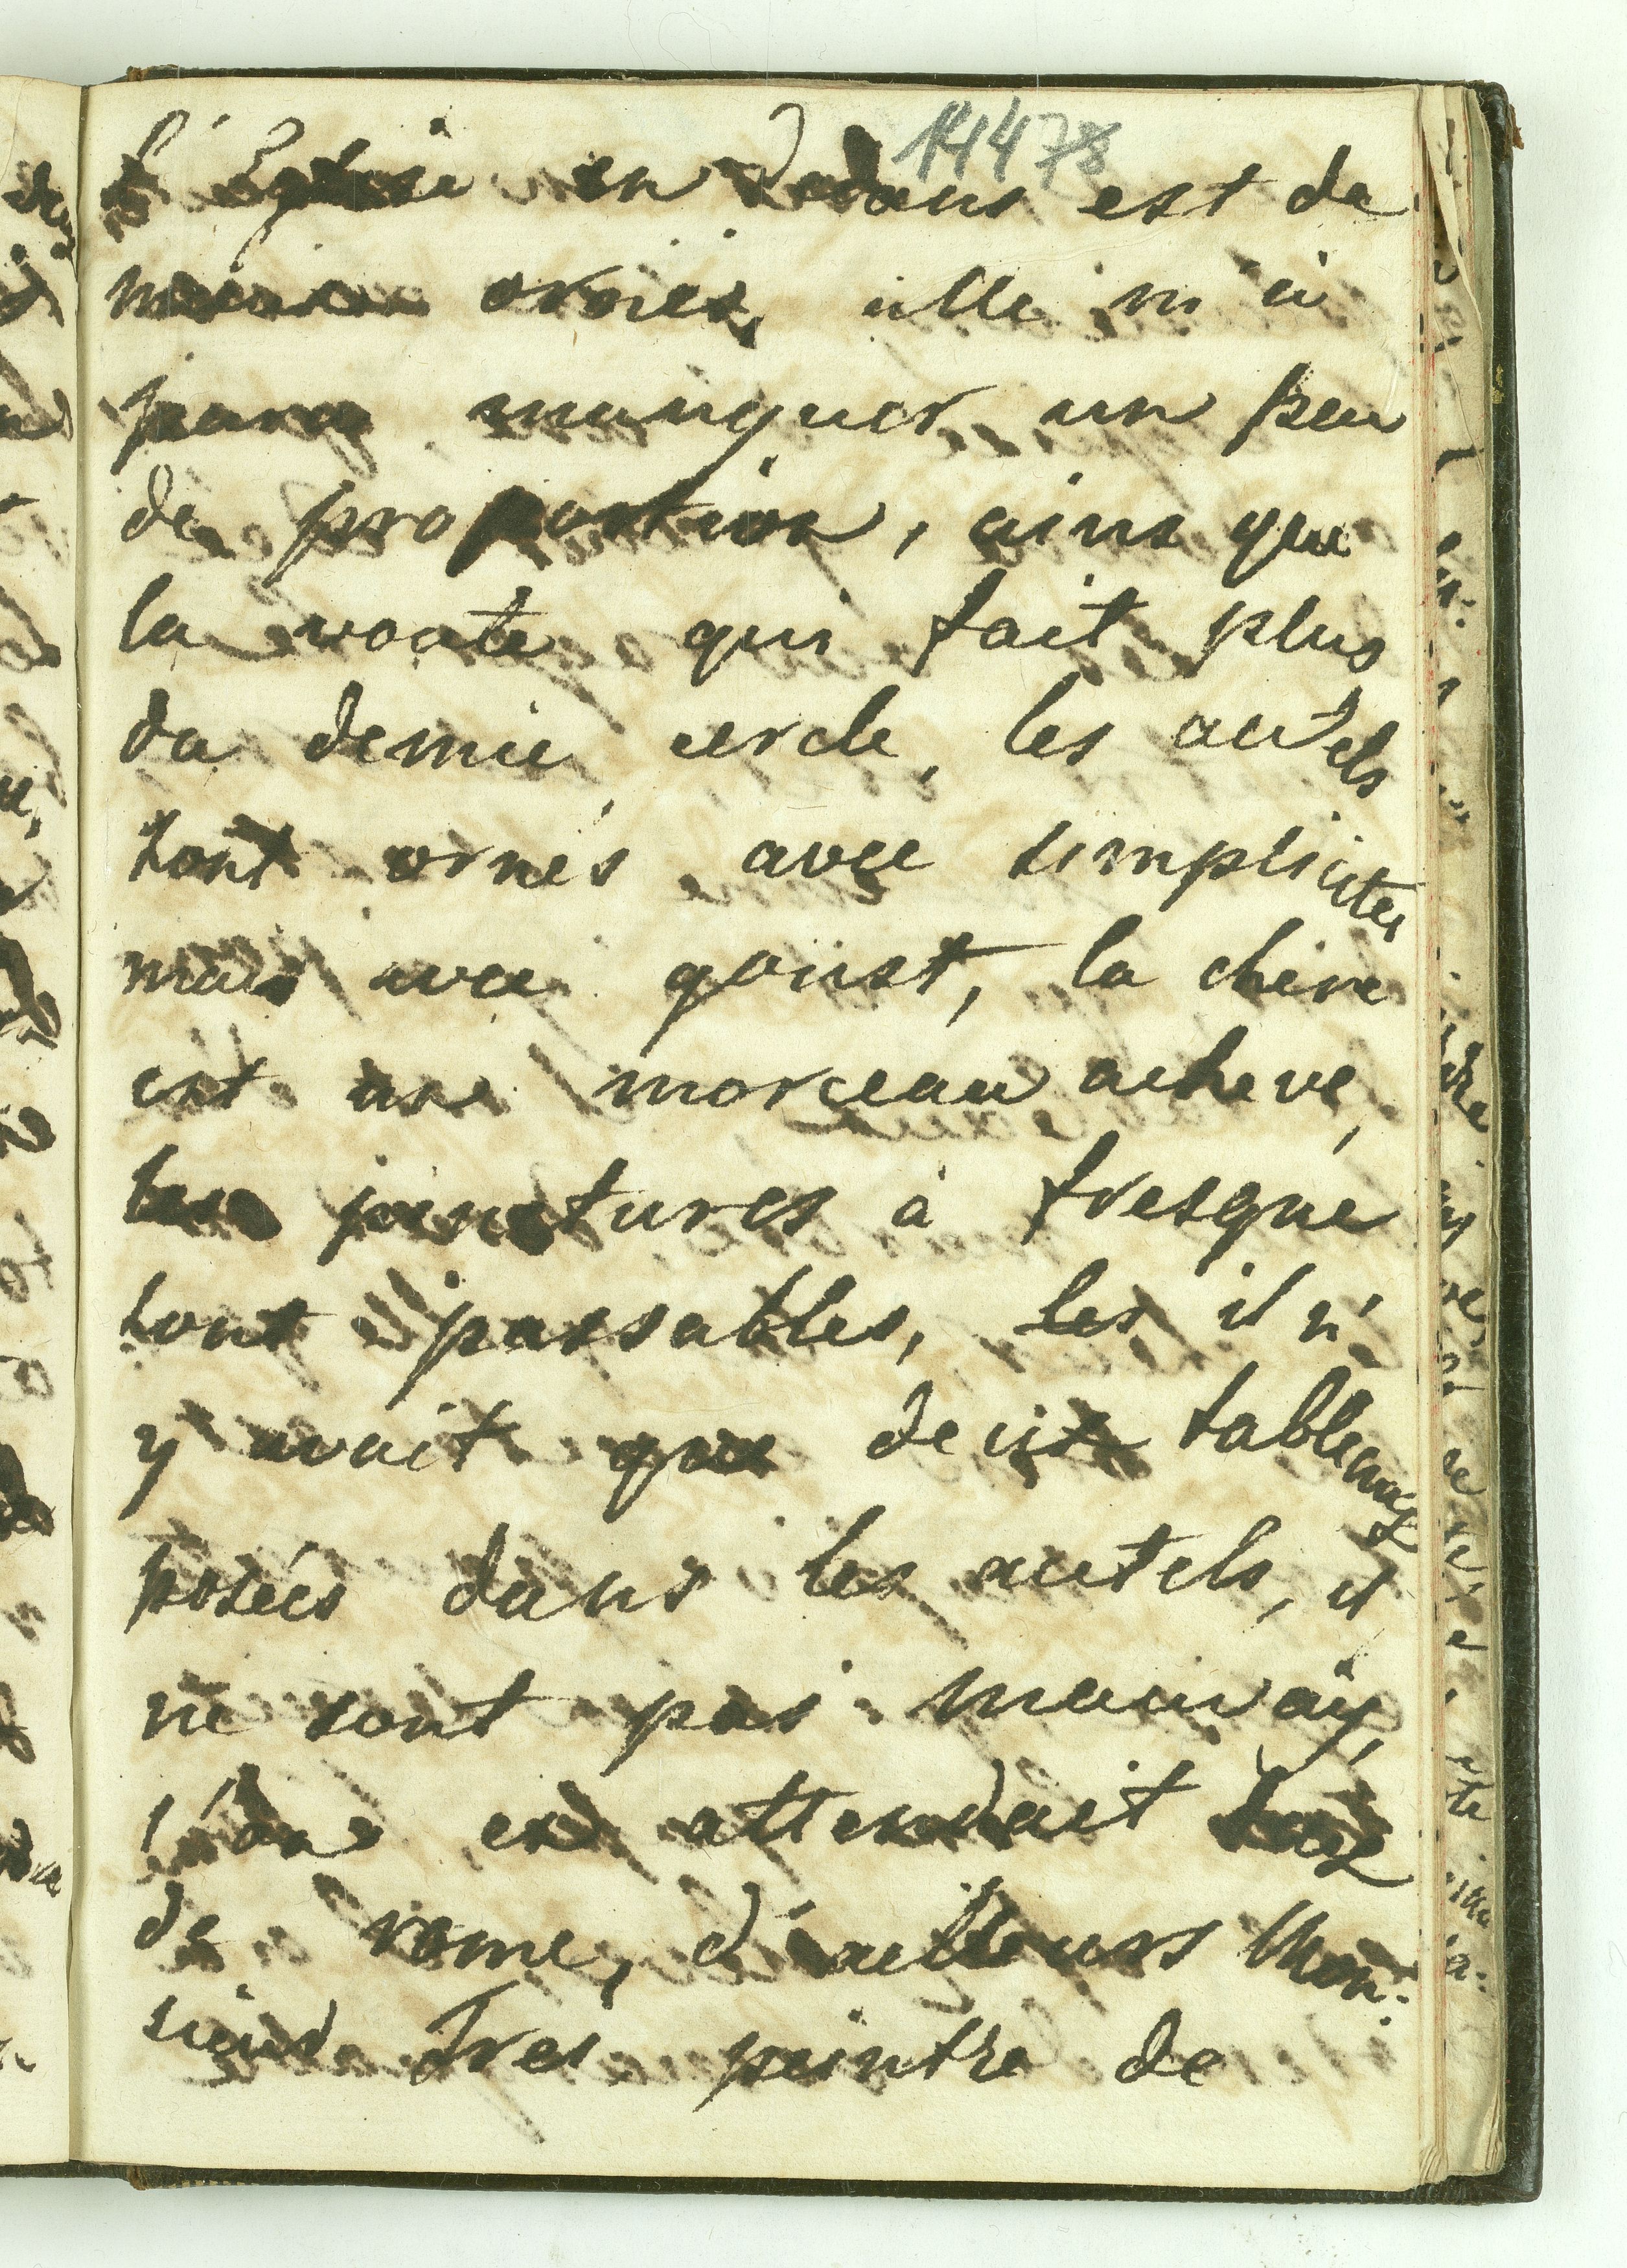 14478
l'Eglise en dedans est de
meme ornés, elle m'a
paru manquer un peu
de proportion, ains que
la voute qui fait plus
da demie cercle, les autels
sont ornés avec simplicites
mais avec goust, la chere
est une morceau acheve,
les pinctures à fresque
sont passables, les il n'
y avait que deux tableaux
posées dans les autels, il
ne sont pas mauvay,
l'on en attendait
de rome, d'ailleurs Mon:
sieur Dres peintre de